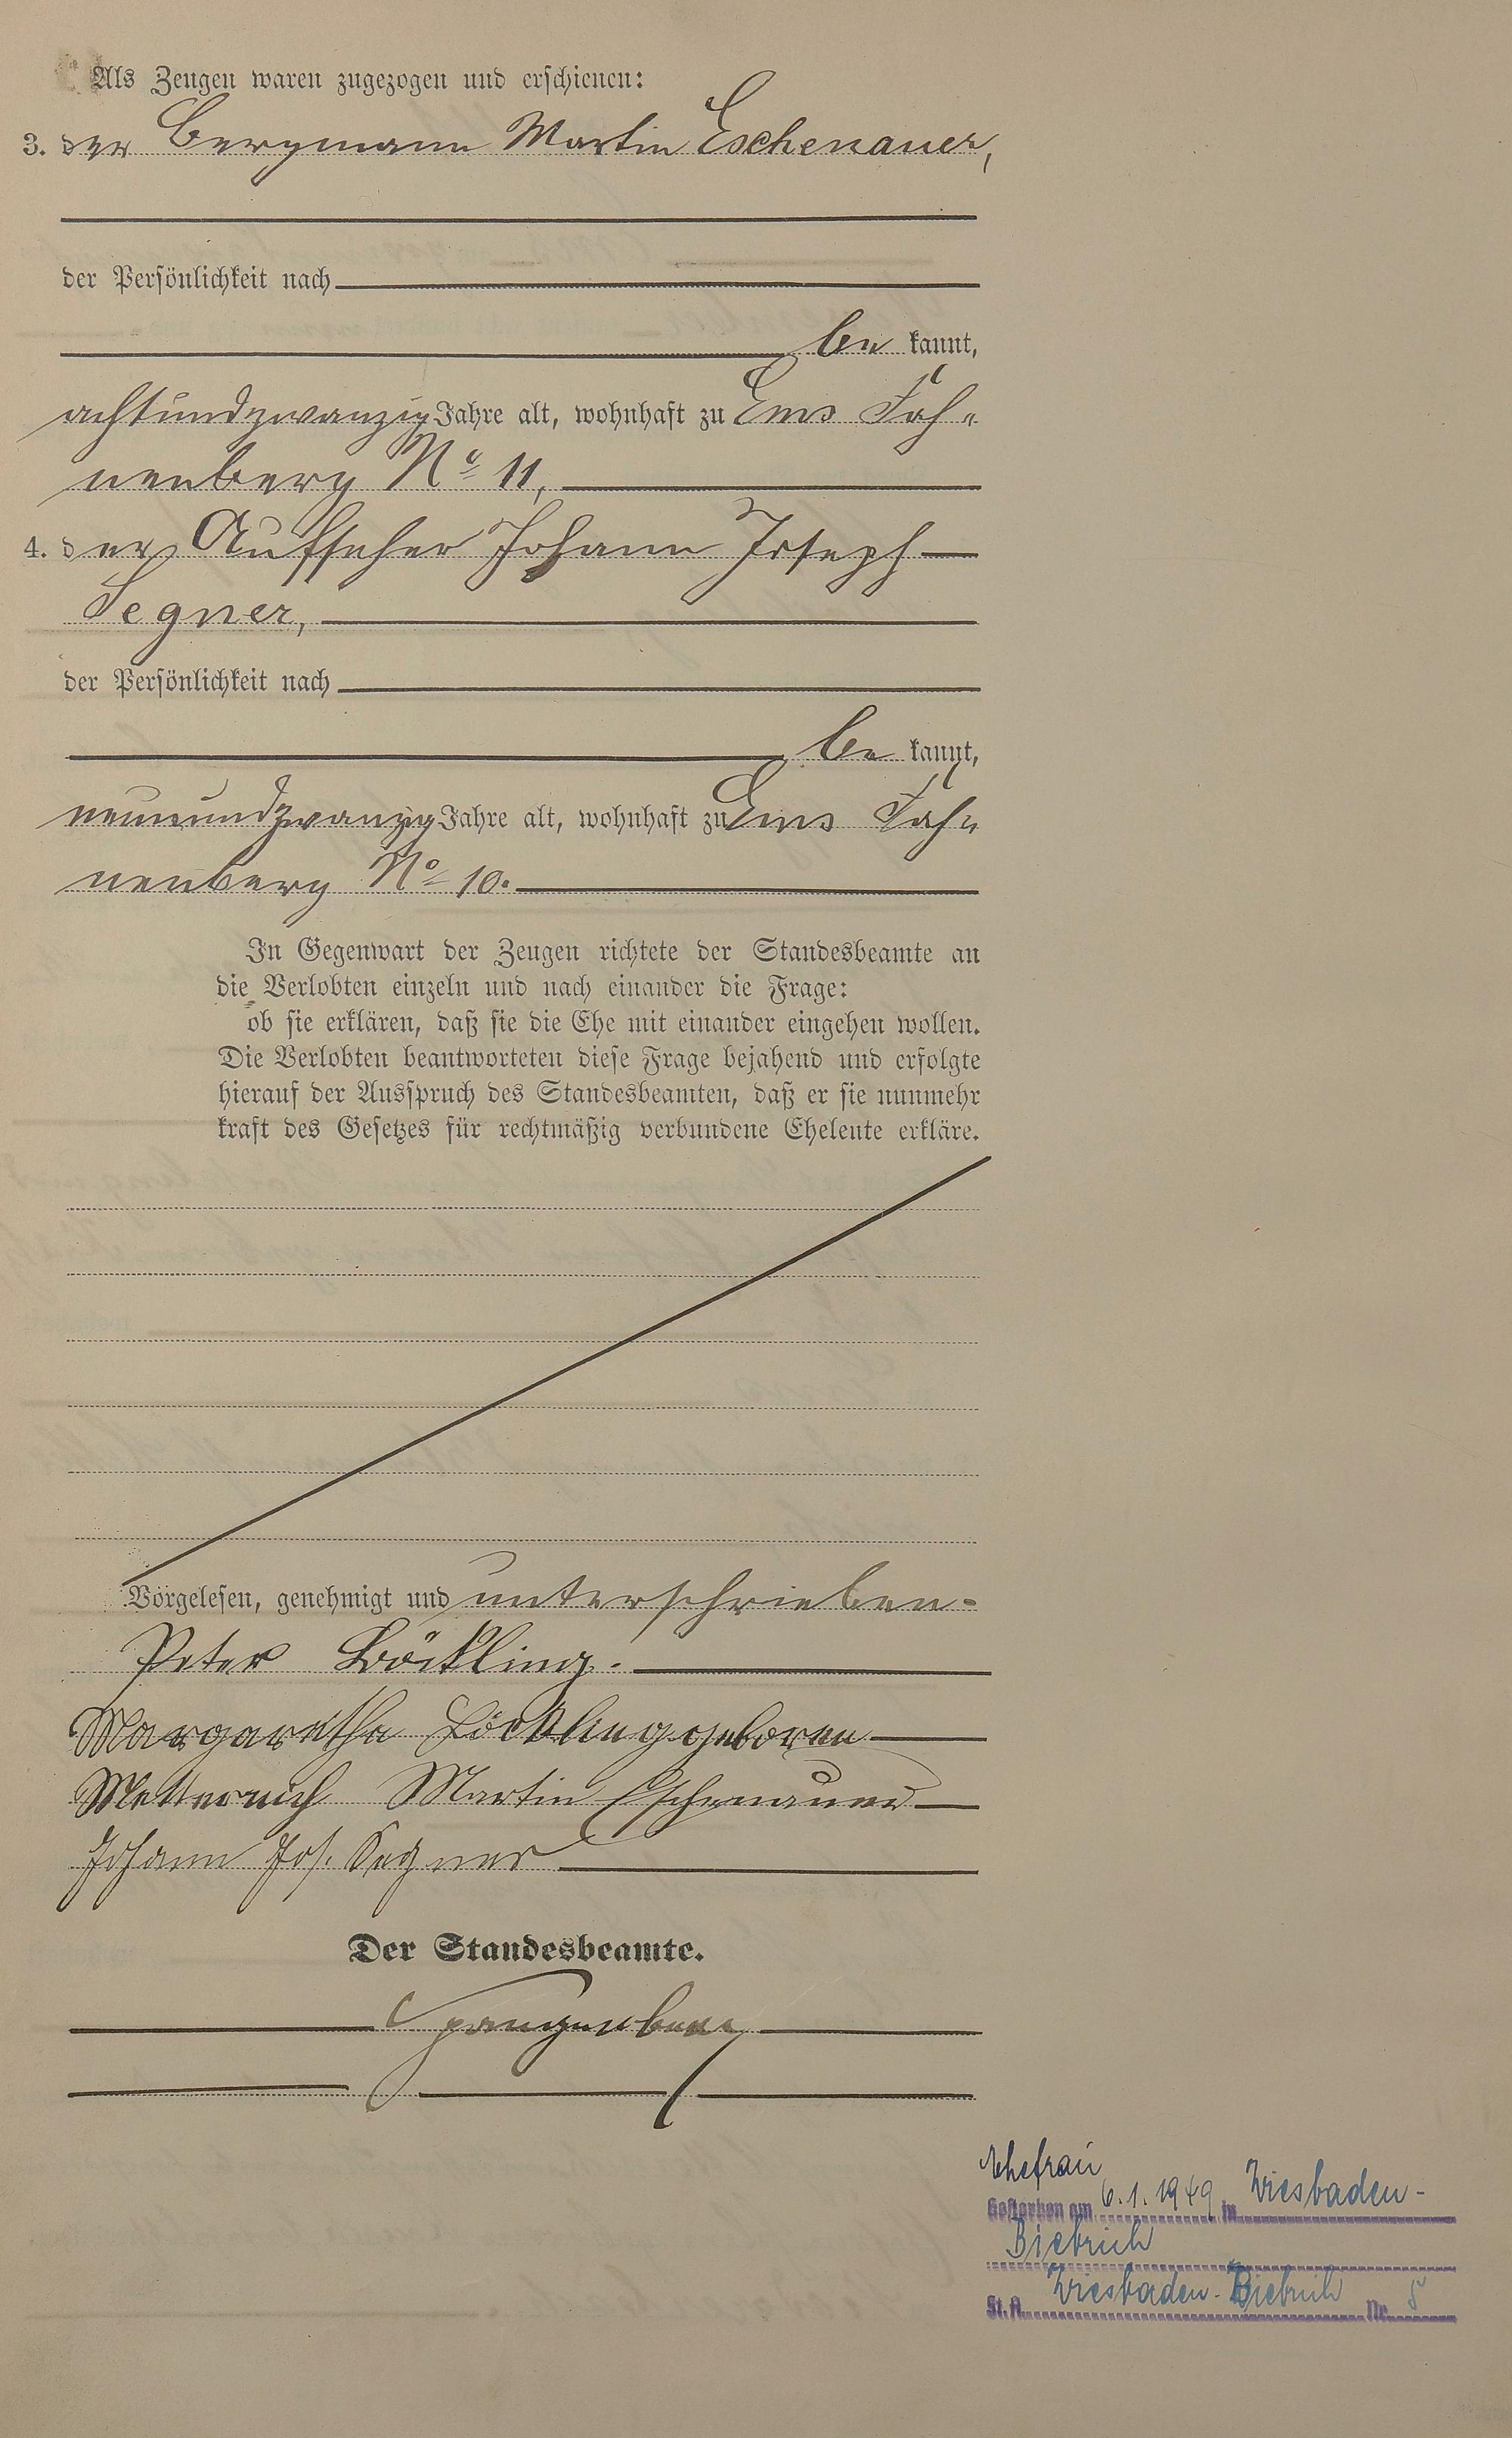 Als Zeugen waren zugezogen und erschienen:
3. der Bergmann Martin Eschenauer,
der Persönlichkeit nach
be kannt,
achtundzwanzig Jahre alt, wohnhaft zu Ems Fah-
nenberg No 11,
4. der Aufseher Johann Joseph
Segner,
der Persönlichkeit nach
be kannt,
neunundzwanzig Jahre alt, wohnhaft zu Ems Fah-
nenberg No 10.
In Gegenwart der Zeugen richtete der Standesbeamte an
die Verlobten einzeln und nach einander die Frage:
ob sie erklären, daß sie die Ehe mit einander eingehen wollen.
Die Verlobten beantworteten diese Frage bejahend und erfolgte
hierauf der Ausspruch des Standesbeamten, daß er sie nunmehr
kraft des Gesetzes für rechtmäßig verbundene Eheleute erkläre.
Vorgelesen, genehmigt und unterschrieben.
Peter Böckling.
Margaretha Böckling geboren
Metternich Martin Eschenauer
Johann Jos. Segner
Der Standesbeamte.
Spangenberg
Ehefrau
Gestorben am 6.1.1949 in Wiesbaden-
Biebrich
St.A. Wiesbaden-Biebrich Nr. 5